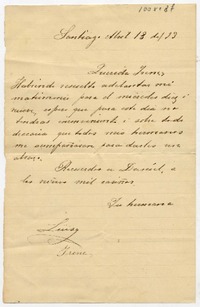 Santiago Abril 13 de 93
Querida Irene,
Habiendo resuelto adelantar mi
matrimonio para el miércoles diez i
nueve, espero que para este dia no
tendras inconveniente i sobre todo
desearia que todos mis hermanos
me acompañaran para darles un
abrazo.
Recuerdos a Daniel, i
a los niños mil cariños
Tu hermana
Luisa
Irene